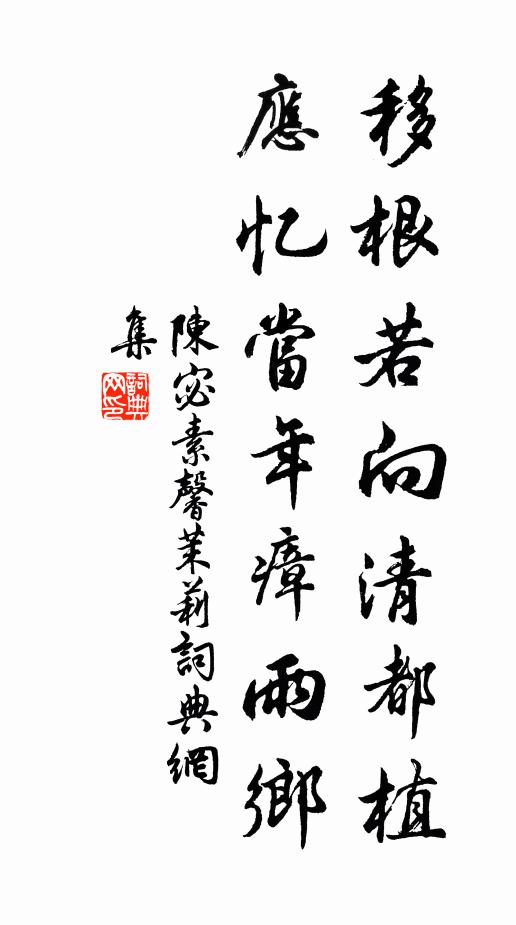 移根若向清都植
應忆當年瘴雨鄉
陳宓素馨茉莉詞典網
集
詞典網印